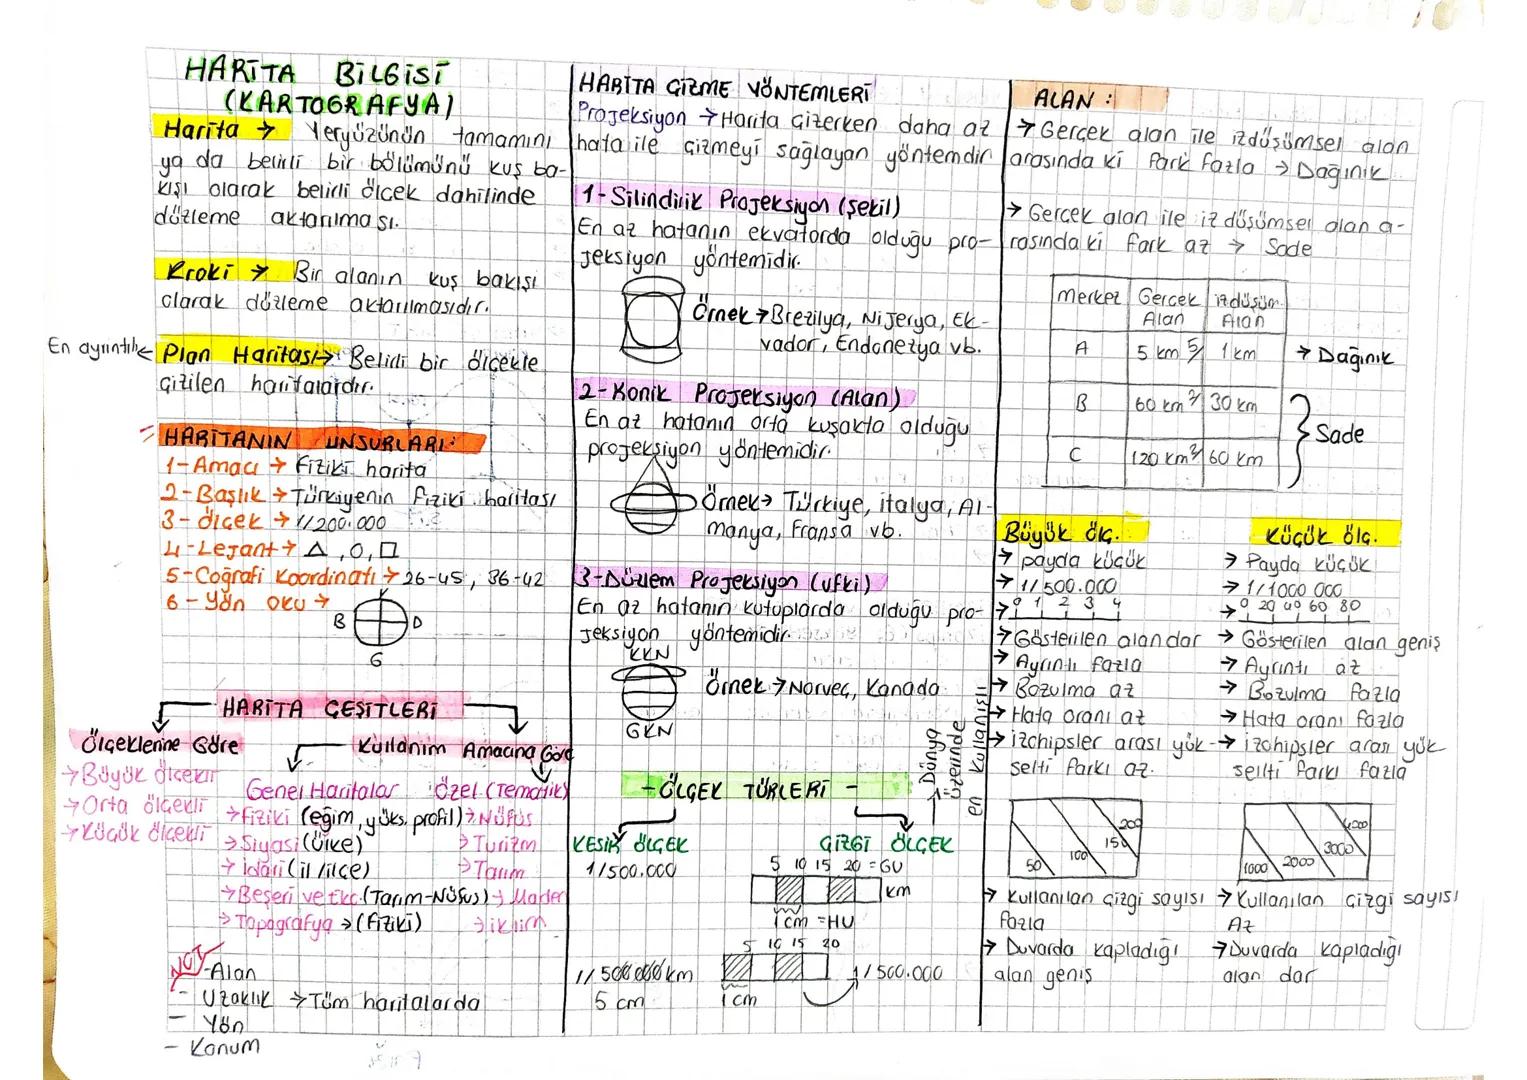 HARİTA BİLGİSİ
(KARTOGRAFYA)
Harita → Yeryüzünün tamamını
ya da belirli bir bölümünü kuş ba-
kışı olarak belirli ölçek dahilinde
düzleme aktarılması.
Kroki → Bir alanın kuş bakışı
olarak düzleme aktarılmasıdır.
En ayrıntılı ← Plan Haritası → Belirli bir ölçekle
çizilen haritalardır.
HARİTANIN UNSURLARI:
1-Amacı → fiziki harita
2-Başlık → Türkiyenin fiziki haritası
3-ölçek → 1/200.000
4-Lejant → △, O, □
5-Coğrafi Koordinatı → 26-45, 36-42
6-Yön oku →
K
B D
G
HARİTA ÇEŞİTLERİ
Ölçeklerine Göre
→ Büyük ölçekli
→ Orta ölçekli
→ Küçük ölçekli
Kullanım Amacına Göre
Genel Haritalar Özel (Tematik)
→ fiziki (eğim, yüks. profil) → Nüfus
→ Siyasi (ülke) → Turizm
→ idari (il/ilçe) → Tarım
→ Beşeri ve Eko. (Tarım-Nüfus) → Maden
→ Topografya → (Fiziki) → iklim
NOT
-Alan
- Uzaklık → Tüm haritalarda
- Yön
- Konum
HARİTA ÇİZME YÖNTEMLERİ
Projeksiyon → Harita çizerken daha az
hata ile çizmeyi sağlayan yöntemdir
1-Silindirik Projeksiyon (Şekil)
En az hatanın ekvatorda olduğu pro-
jeksiyon yöntemidir.
Örnek → Brezilya, Nijerya, Ek-
vador, Endonezya vb.
2-Konik Projeksiyon (Alan)
En az hatanın orta kuşakta olduğu
projeksiyon yöntemidir.
Örnek → Türkiye, italya, Al-
manya, Fransa vb.
3-Düzlem Projeksiyon (ufki)
En az hatanın kutuplarda olduğu pro-
jeksiyon yöntemidir.
KKN
Örnek → Norveç, Kanada
GKN
- ÖLÇEK TÜRLERİ -
→ Dünya
üzerinde
en kullanışlı
KESİR ÖLÇEK
1/500.000
ÇİZGİ ÖLÇEK
5 10 15 20 = GU
km
1cm = HU
5 10 15 20
1/500.000 km
5 cm
1/500.000
1 cm
ALAN :
→ Gerçek alan ile izdüşümsel alan
arasında ki fark fazla → Dağınık
→ Gerçek alan ile iz düşümsel alan a-
rasındaki fark az → Sade
Merkez Gerçek Alan izdüşüm. Alan
A 5 km 5 1 km → Dağınık
B 60 km 2 30 km
C 120 km 2 60 km
Sade
Büyük ölç.
→ payda küçük
→ 1/500.000
→ 0 1 2 3 4
→ Gösterilen alan dar
→ Ayrıntı fazla
→ Bozulma az
→ Hata oranı az
→ izohipsler arası yük-
selti farkı az.
50 100 150 200
→ Kullanılan çizgi sayısı
fazla
→ Duvarda kapladığı
alan geniş
Küçük ölç.
→ Payda küçük
→ 1/1000 000
→ 0 20 40 60 80
→ Gösterilen alan geniş
→ Ayrıntı az
→ Bozulma fazla
→ Hata oranı fazla
→ izohipsler arası yük
seltti farkı fazla
1000 2000 3000 4000
→ Kullanılan çizgi sayısı
Az
→ Duvarda kapladığı
alan dar